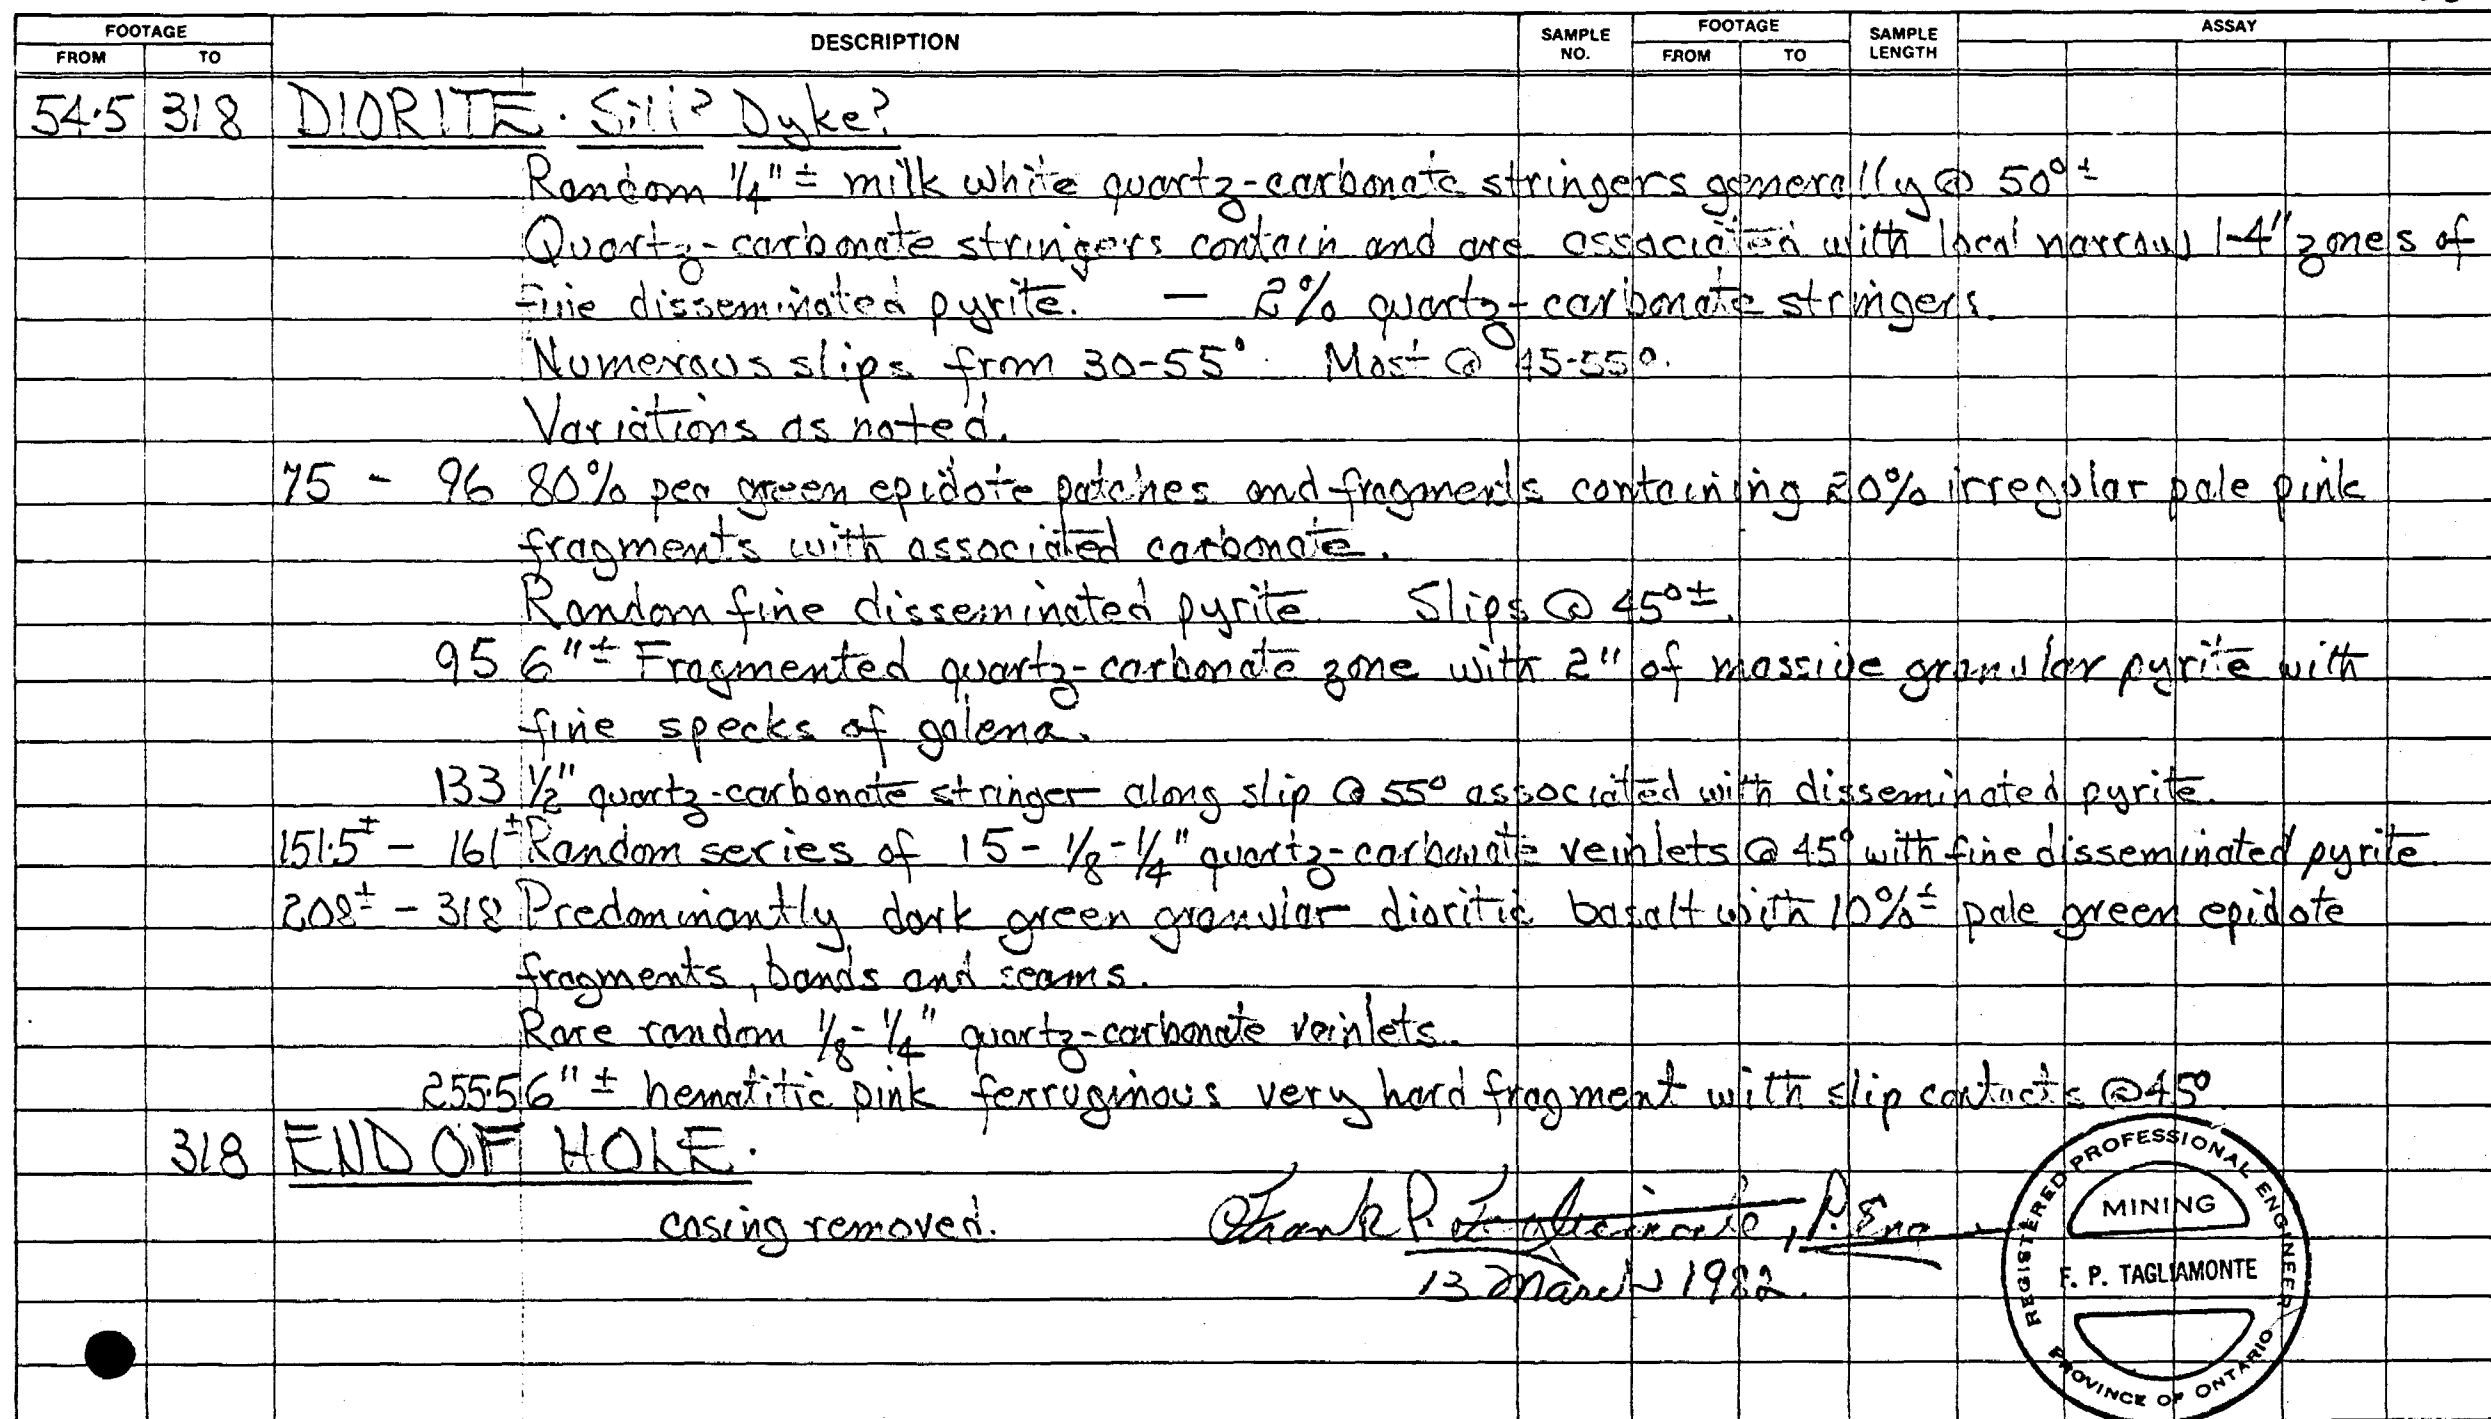 FOOTAGE DESCRIPTION SAMPLE NO. FOOTAGE SAMPLE LENGTH ASSAY
FROM TO FROM TO
54.5 318 DIORITE. Sill? Dyke?
Random 1/4" ± milk white quartz-carbonate stringers generally @ 50° ±
Quartz-carbonate stringers contain and are associated with local narrow 1-4" zones of
fine disseminated pyrite. — 2% quartz-carbonate stringers.
Numerous slips from 30-55° Most @ 45-55°.
Variations as noted.
75 - 96 80% pea green epidote patches and fragments containing 20% irregular pale pink
fragments with associated carbonate.
Random fine disseminated pyrite. Slips @ 45° ±.
95 6" ± Fragmented quartz-carbonate zone with 2" of massive granular pyrite with
fine specks of galena.
133 1/2" quartz-carbonate stringer along slip @ 55° associated with disseminated pyrite.
151.5± - 161± Random series of 15 - 1/8 - 1/4" quartz-carbonate veinlets @ 45° with fine disseminated pyrite.
208± - 318 Predominantly dark green granular dioritic basalt with 10% ± pale green epidote
fragments, bands and seams.
Rare random 1/8 - 1/4" quartz-carbonate veinlets.
255.5 6" ± hematitic pink ferruginous very hard fragment with slip contacts @ 45°
318 END OF HOLE.
casing removed. Frank P. Tagliamonte, P. Eng
13 March 1982.
REGISTERED PROFESSIONAL ENGINEER
MINING
F. P. TAGLIAMONTE
PROVINCE OF ONTARIO